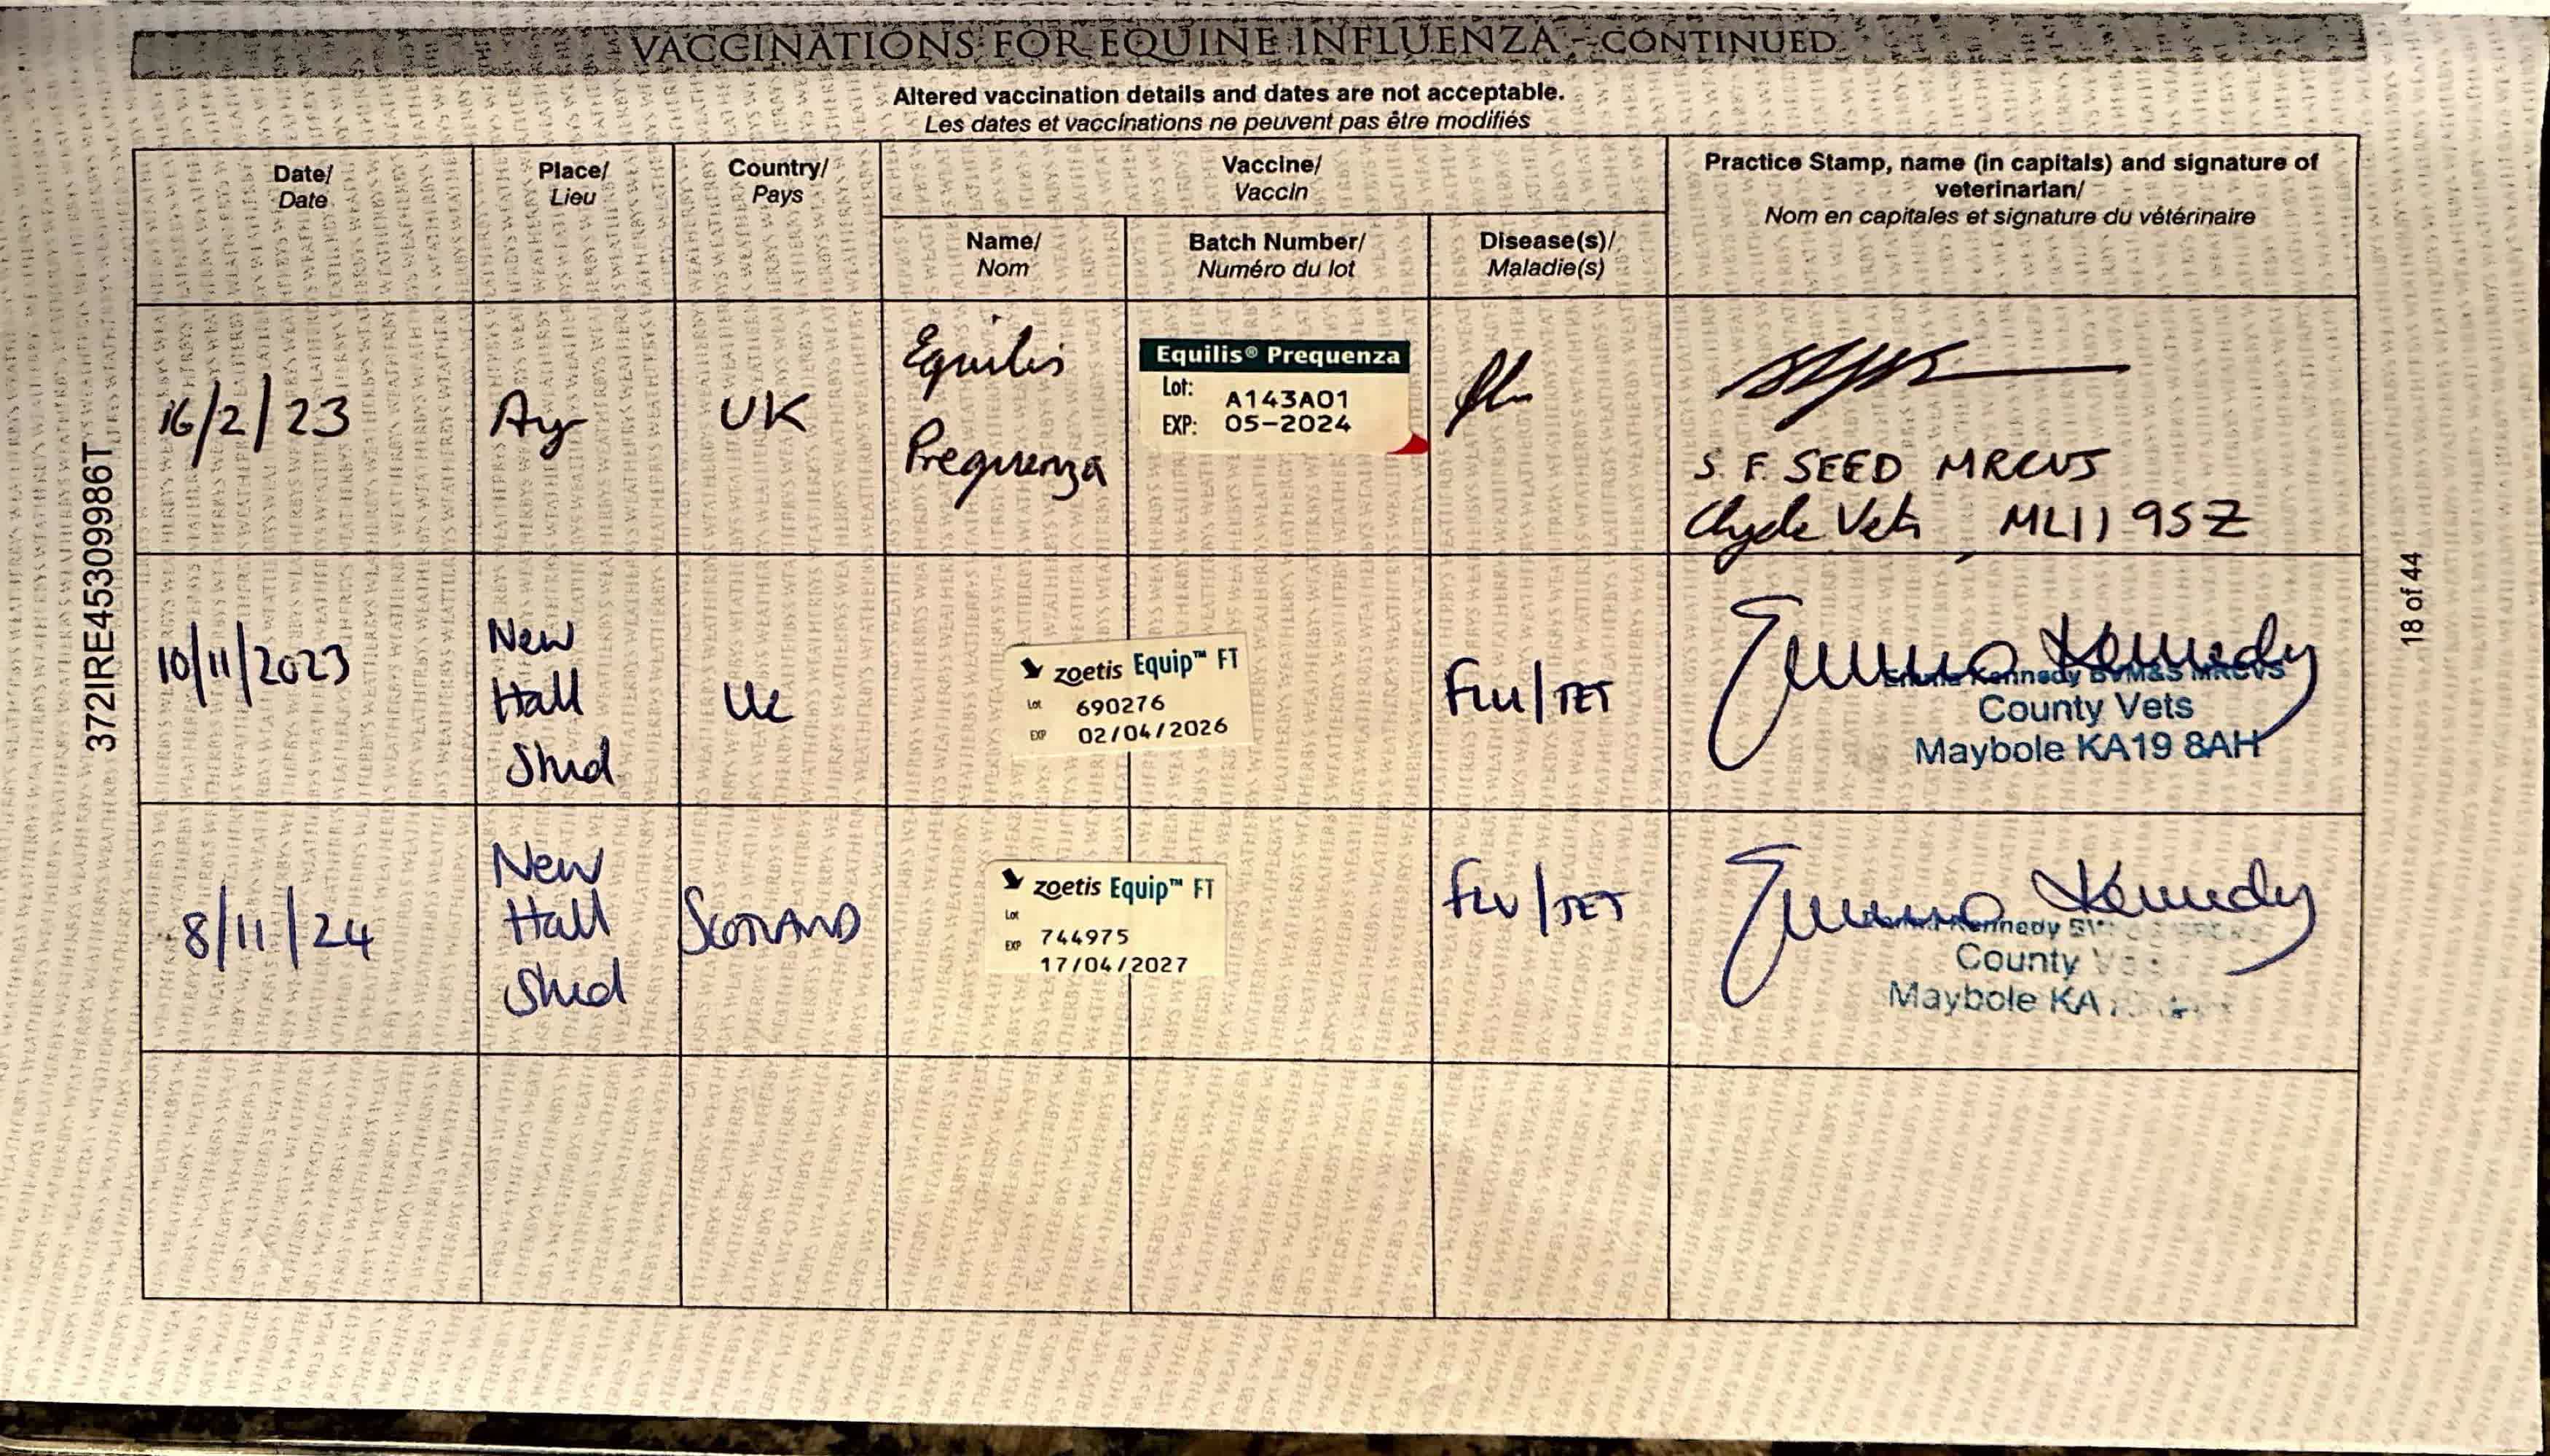 VACCINATIONS FOR EQUINE INFLUENZA - CONTINUED
Altered vaccination details and dates are not acceptable.
Les dates et vaccinations ne peuvent pas être modifiés
Date/
Date
Place/
Lieu
Country/
Pays
Vaccine/
Vaccin
Name/
Nom
Batch Number/
Numéro du lot
Disease(s)/
Maladie(s)
Practice Stamp, name (in capitals) and signature of
veterinarian/
Nom en capitales et signature du vétérinaire
16/2/23
Ayr
UK
Equilis
Prequenza
Equilis® Prequenza
Lot: A143A01
EXP: 05-2024
flu
S. F. SEED MRCVS
Clyde Vets ML11 9SZ
10/11/2023
New
Hall
Stud
UK
zoetis Equip™ FT
Lot 690276
EXP 02/04/2026
FLU/TET
Emma Kennedy
Emma Kennedy BVM&S MRCVS
County Vets
Maybole KA19 8AH
8/11/24
New
Hall
Stud
SCOTLAND
zoetis Equip™ FT
Lot
EXP 744975
17/04/2027
FLU/TET
Emma Kennedy
Kennedy
County
Maybole KA
372IRE45309986T
18 of 44